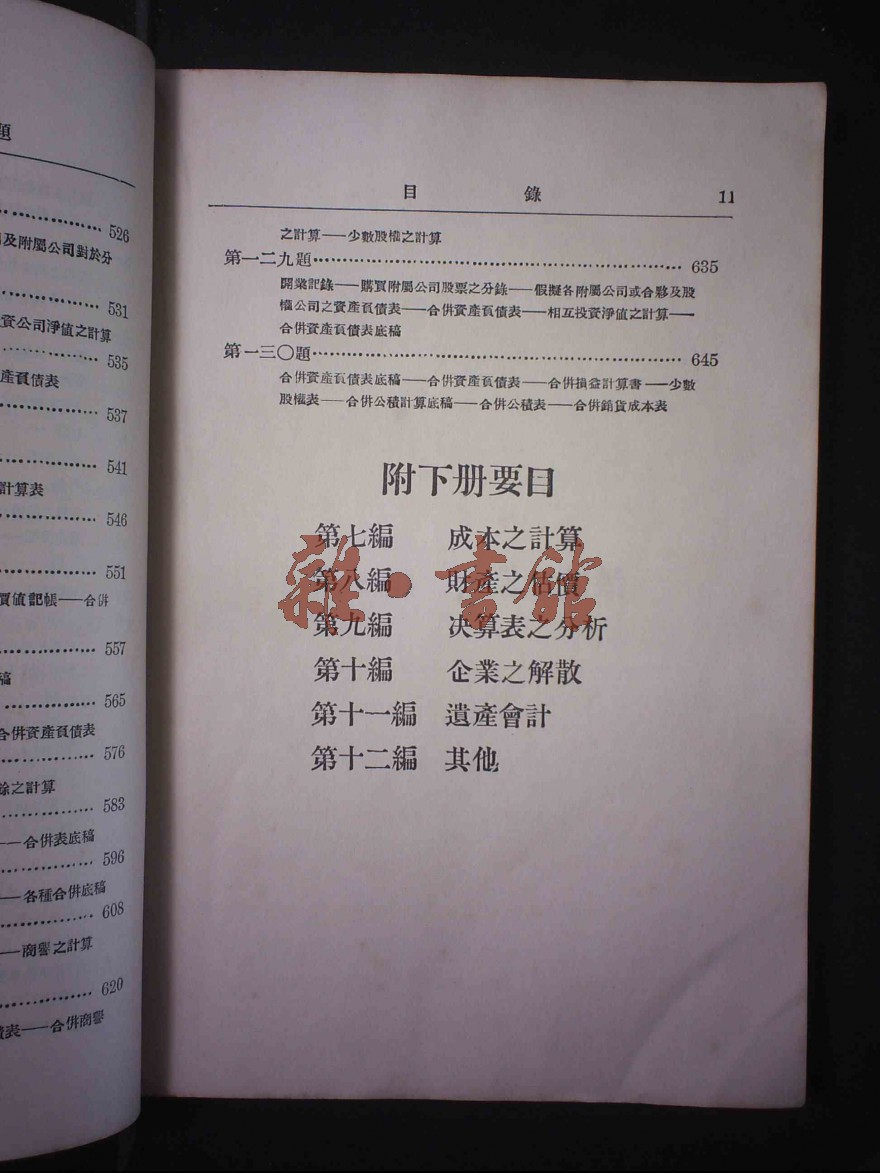 題
526
及附屬公司對於分
531
資公司淨值之計算
535
產負債表
537
541
計算表
546
551
價值記帳——合併
557
稿
565
合併資產負債表
576
餘之計算
583
——合併表底稿
596
——各種合併底稿
608
——商譽之計算
620
債表——合併商譽
目錄 11
之計算——少數股權之計算
第一二九題 635
開業記錄——購買附屬公司股票之分錄——假擬各附屬公司或合夥及股
權公司之資產負債表——合併資產負債表——相互投資淨值之計算——
合併資產負債表底稿
第一三〇題 645
合併資產負債表底稿——合併資產負債表——合併損益計算書——少數
股權表——合併公積計算底稿——合併公積表——合併銷貨成本表
附下册要目
第七編 成本之計算
第八編 財產之估價
第九編 決算表之分析
第十編 企業之解散
第十一編 遺產會計
第十二編 其他
雜·書館